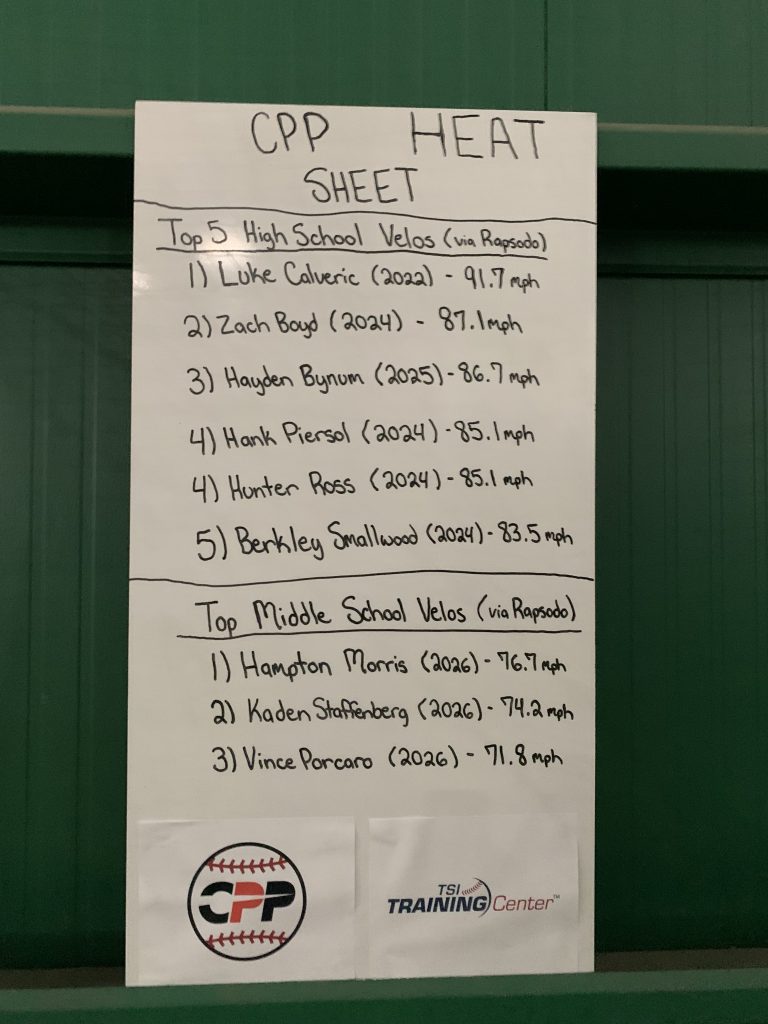 CPP HEAT
SHEET
Top 5 High School Velos (via Rapsodo)
1) Luke Calveric (2022) - 91.7 mph
2) Zach Boyd (2024) - 87.1 mph
3) Hayden Bynum (2025) - 86.7 mph
4) Hank Piersol (2024) - 85.1 mph
4) Hunter Ross (2024) - 85.1 mph
5) Berkley Smallwood (2024) - 83.5 mph
Top Middle School Velos (via Rapsodo)
1) Hampton Morris (2026) - 76.7 mph
2) Kaden Staffenberg (2026) - 74.2 mph
3) Vince Porcaro (2026) - 71.8 mph
CPP
TSI
TRAINING Center™